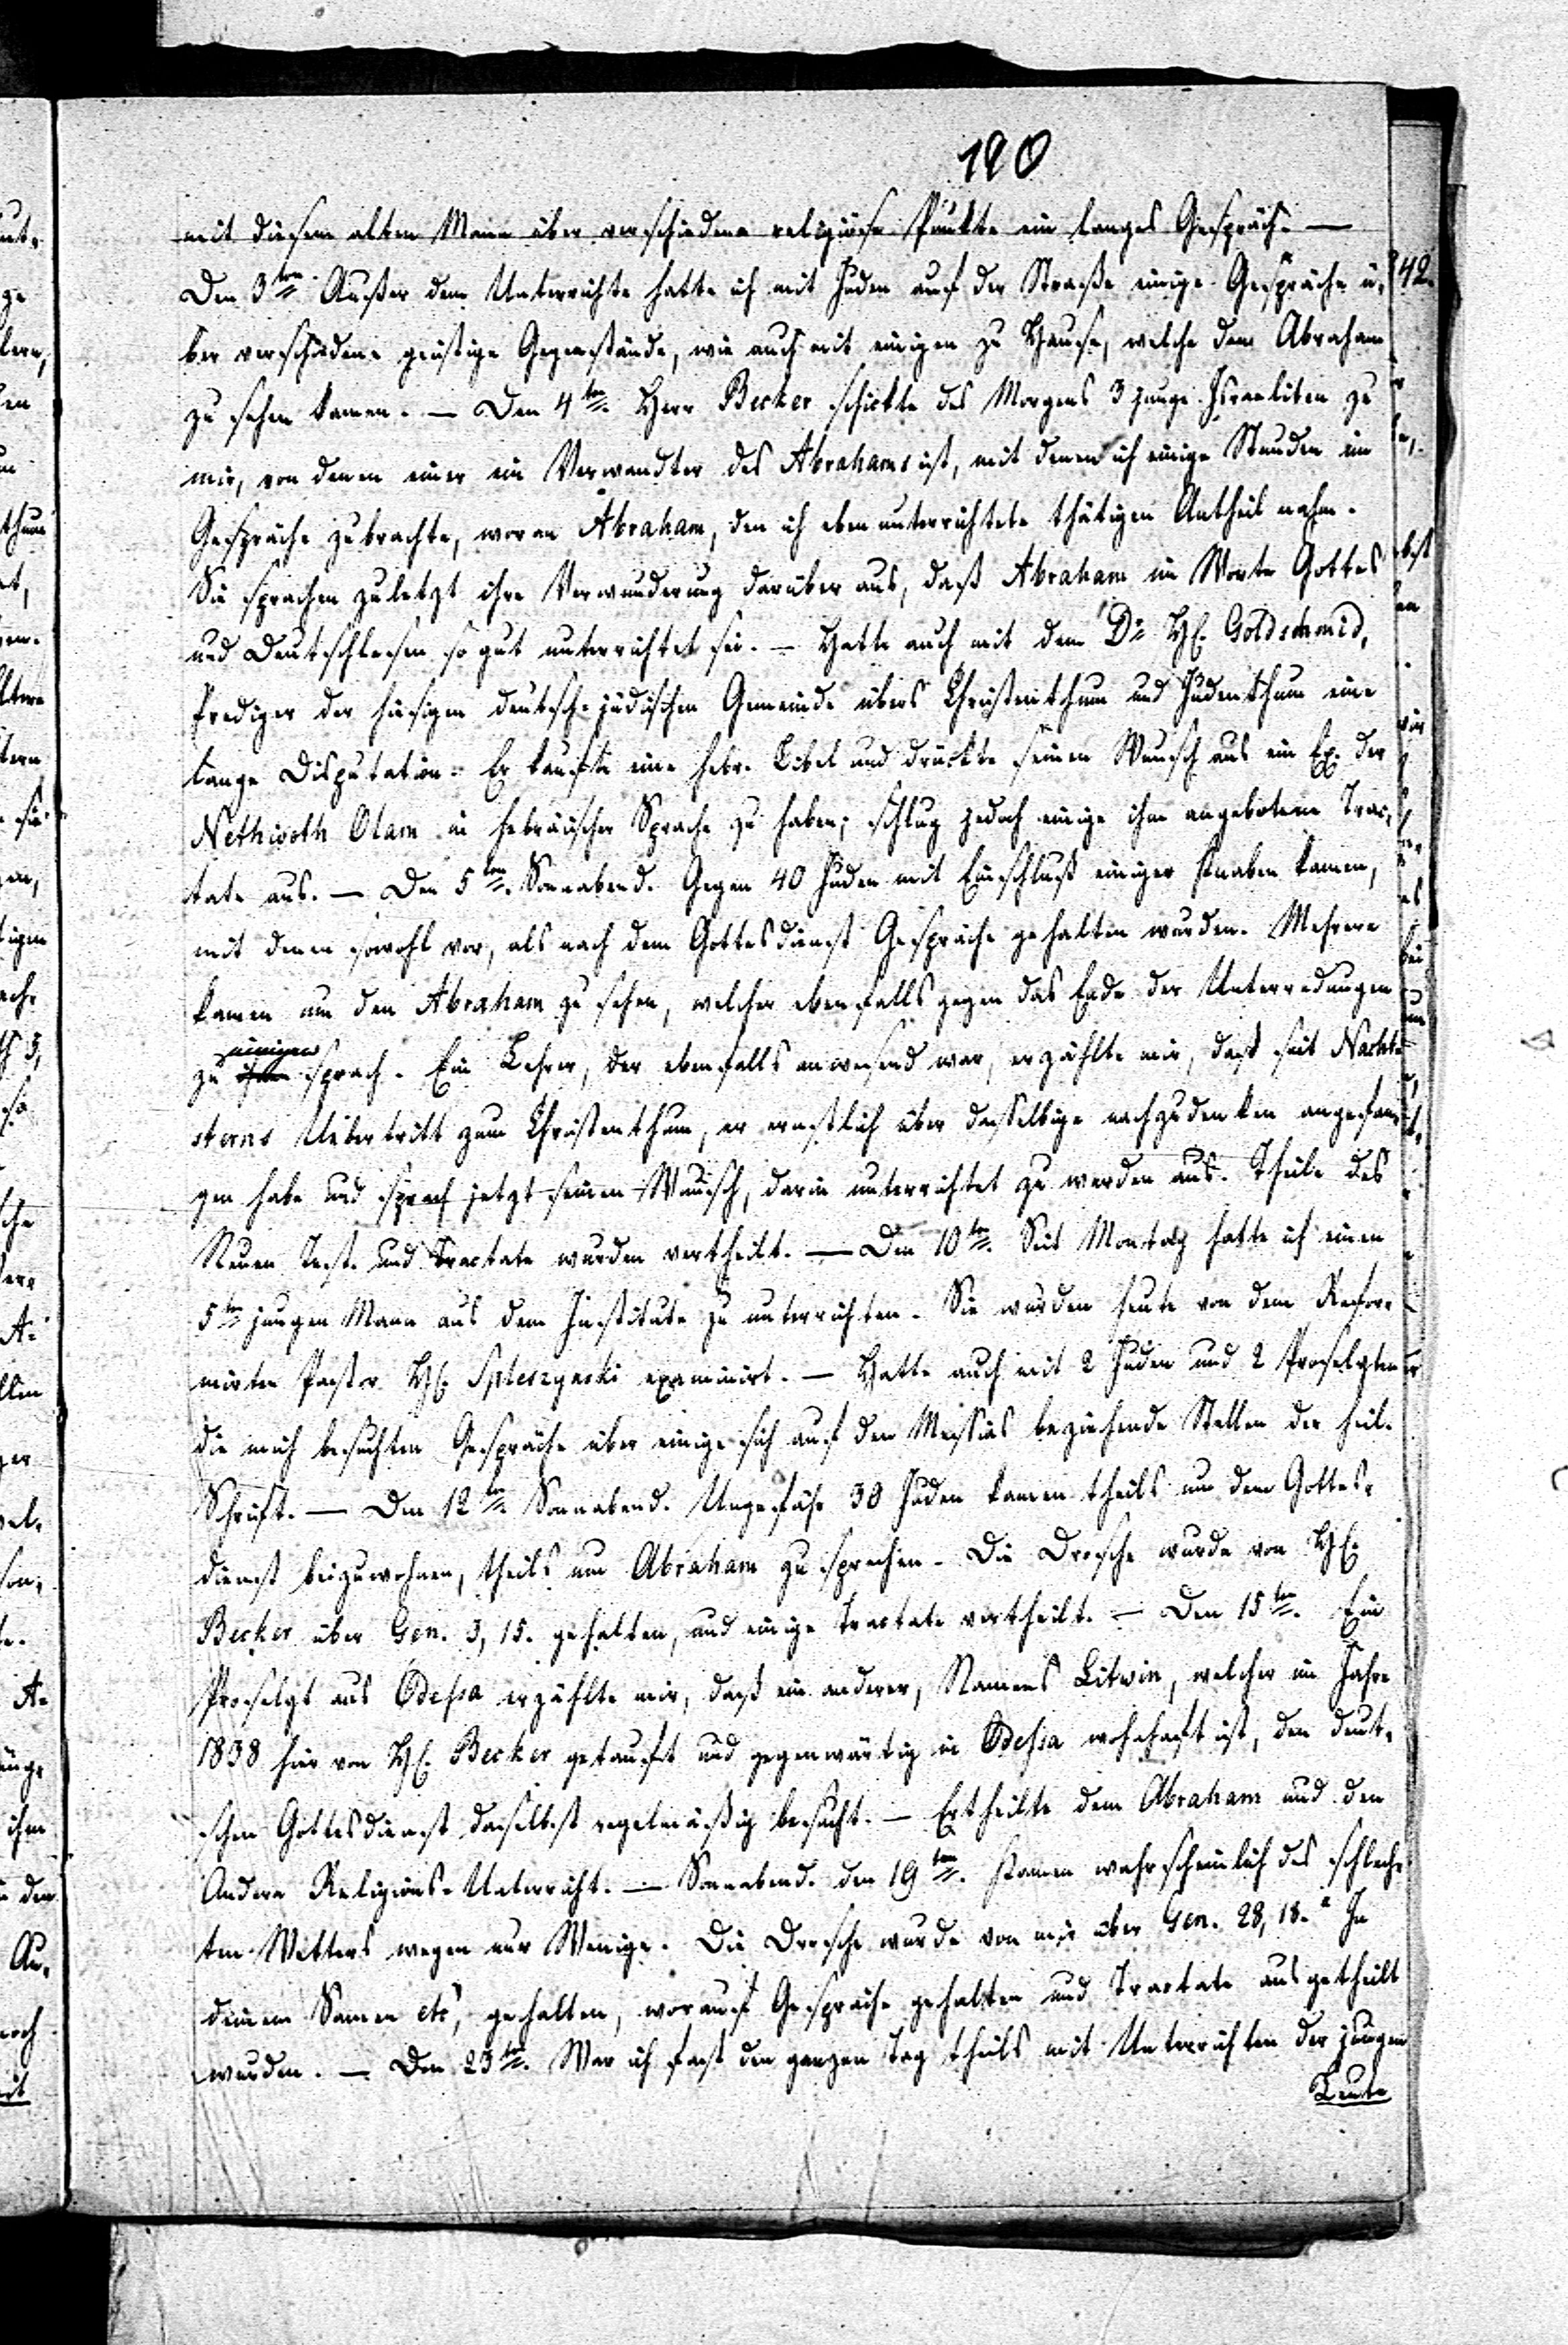 190
mit diesem alten Mann über verschiedene religiöse Punkte ein langes Gespräch. —
Den 3ten Außer dem Unterrichte hatte ich mit Juden auf der Straße einige Gespräche ü-
ber verschiedene geistige Gegenstände, wie auch mit einigen zu Hause, welche den Abraham
zu sehen kamen. — Den 4ten. Herr Becker schickte des Morgens 3 junge Israeliten zu
mir, von denen einer ein Verwandter des Abrahams ist, mit denen ich einige Stunden im
Gespräche zubrachte, woran Abraham, den ich eben unterrichtete thätigen Antheil nahm.
Sie sprachen zuletzt ihre Verwunderung darüber aus, daß Abraham im Worte Gottes
und Deutschlesen so gut unterrichtet sei. — Hatte auch mit dem Dr. H. Goldschmid,
Prediger der hiesigen deutsch-jüdischen Gemeinde übers Christenthum und Judenthum eine
lange Disputation. Er kaufte eine hebr. Bibel und drückte seinen Wunsch aus ein Ex. der
Nethiwoth Olam in hebräischer Sprache zu haben; schlug jedoch einige ihm angebotene Trac-
tate aus. — Den 5ten. Sonnabend. Gegen 40 Juden mit Einschluß einiger Knaben kamen,
mit denen sowohl vor, als nach dem Gottesdienst Gespräche gehalten wurden. Mehrere
kamen um den Abraham zu sehen, welcher ebenfalls gegen das Ende der Unterredungen
zu einigen sprach. Ein Lehrer, der ebenfalls anwesend war, erzählte mir, daß seit Nacht-
sterns Uebertritt zum Christenthum, er ernstlich über dasselbige nachzudenken angefan-
gen habe und sprach jetzt seinen Wunsch, darin unterrichtet zu werden aus. Theile des
Neuen Test. und Tractate wurden vertheilt. — Den 10ten. Seit Montag hatte ich einen
5ten jungen Mann aus dem Institute zu unterrichten. Sie wurden heute von dem Refor-
mirten Pastor H. Spleszynski examinirt. — Hatte auch mit 2 Juden und 2 Proselyten
die mich besuchten Gespräche über einige sich auf den Messias beziehende Stellen der heil.
Schrift. — Den 12ten. Sonnabend. Ungefähr 30 Juden kamen theils um dem Gottes-
dienst beizuwohnen, theils um Abraham zu sprechen. Die Drosche wurde von H.
Becker über Gen. 3, 15. gehalten, und einige Tractate vertheilt. — Den 15ten. Ein
Proselyt aus Odessa erzählte mir, daß ein anderer, Namens Litwin, welcher im Jahre
1838 hier von H. Becker getauft und gegenwärtig in Odessa wohnhaft ist, den deut-
schen Gottesdienst daselbst regelmäßig besucht. — Ertheilte dem Abraham und den
Andern Religions-Unterricht. — Sonnabend. den 19ten. Kamen wahrscheinlich des schlech-
ten Wetters wegen nur Wenige. Die Drosche wurde von mir über Gen. 28, 18. "In
deinem Samen etc", gehalten, worauf Gespräche gehalten und Tractate ausgetheilt
wurden. — Den 23ten. War ich fast den ganzen Tag theils mit Unterrichten der jungen
Leute